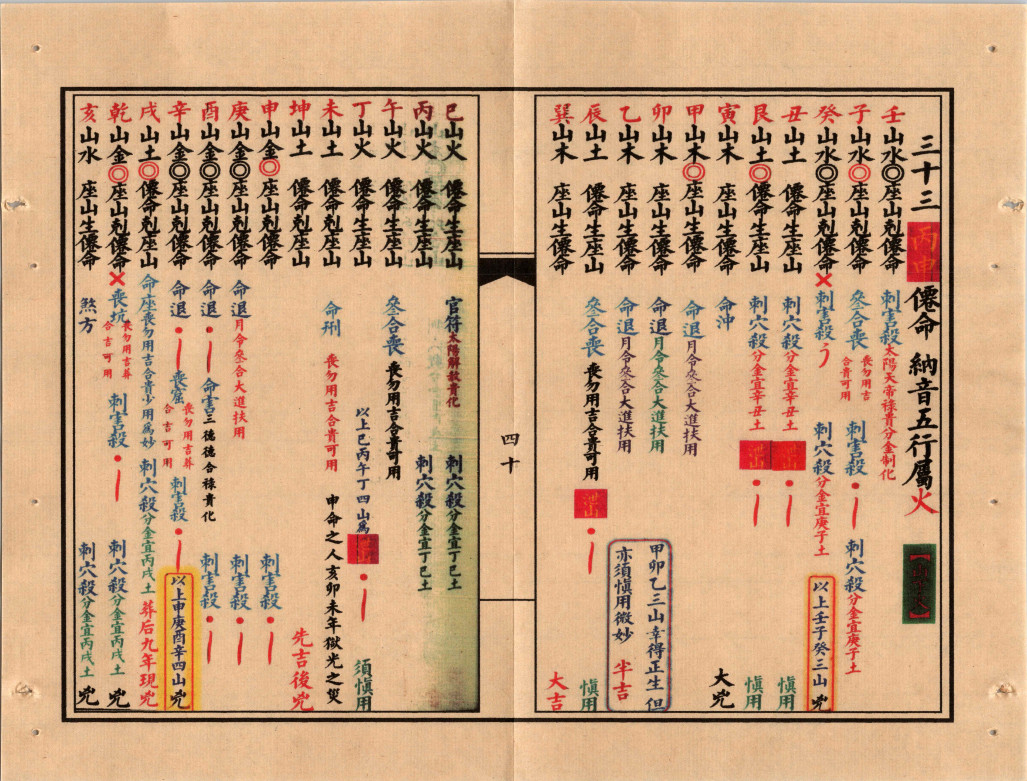 三十三 丙申 僊命 納音五行屬火
壬山水◎座山剋僊命 刺害殺太陽天帝祿貴分金制化
子山水◎座山剋僊命 叄合喪 喪勿用吉合貴可用 刺害殺 刺穴殺分金宜庚子土
癸山水◎座山剋僊命 刺害殺 刺穴殺分金宜庚子土
以上壬子癸三山 兇
丑山土 僊命生座山 刺穴殺分金宜辛丑土 慎用
艮山土◎僊命生座山 刺穴殺分金宜辛丑土 慎用
寅山木 座山生僊命 命沖 大兇
甲山木◎座山生僊命 命退月令叄合大進扶用
卯山木 座山生僊命 命退月令叄合大進扶用
乙山木 座山生僊命 命退月令叄合大進扶用
甲卯乙三山幸得正生但
亦須慎用微妙 半吉
辰山土 僊命生座山 叄合喪 喪勿用吉合貴可用 慎用
巽山木 座山生僊命 大吉
四十
巳山火 僊命生座山 官符太陽解救貴化 刺穴殺分金宜丁巳土
丙山火 僊命生座山 刺穴殺分金宜丁巳土
午山火 僊命生座山 叄合喪 喪勿用吉合貴可用
丁山火 僊命生座山 以上巳丙午丁四山為 須慎用
未山土 僊命剋座山 命刑 喪勿用吉合貴可用 申命之人亥卯未年獄光之災
坤山土 僊命剋座山 先吉後兇
申山金◎座山剋僊命 刺害殺
庚山金◎座山剋僊命 命退月令叄合大進扶用 刺害殺
酉山金◎座山剋僊命 命退 命害三德德合祿貴化 刺害殺
辛山金◎座山剋僊命 命退 喪窟 喪勿用吉葬合吉可用 刺害殺
以上申庚酉辛四山 兇
戌山土◎僊命剋座山 命座喪勿用吉合貴少用為妙 刺穴殺分金宜丙戌土 葬后九年現兇
乾山金◎座山剋僊命 喪坑 喪勿用吉葬合吉可用 刺害殺 刺穴殺分金宜丙戌土 兇
亥山水 座山生僊命 煞方 刺穴殺分金宜丙戌土 兇